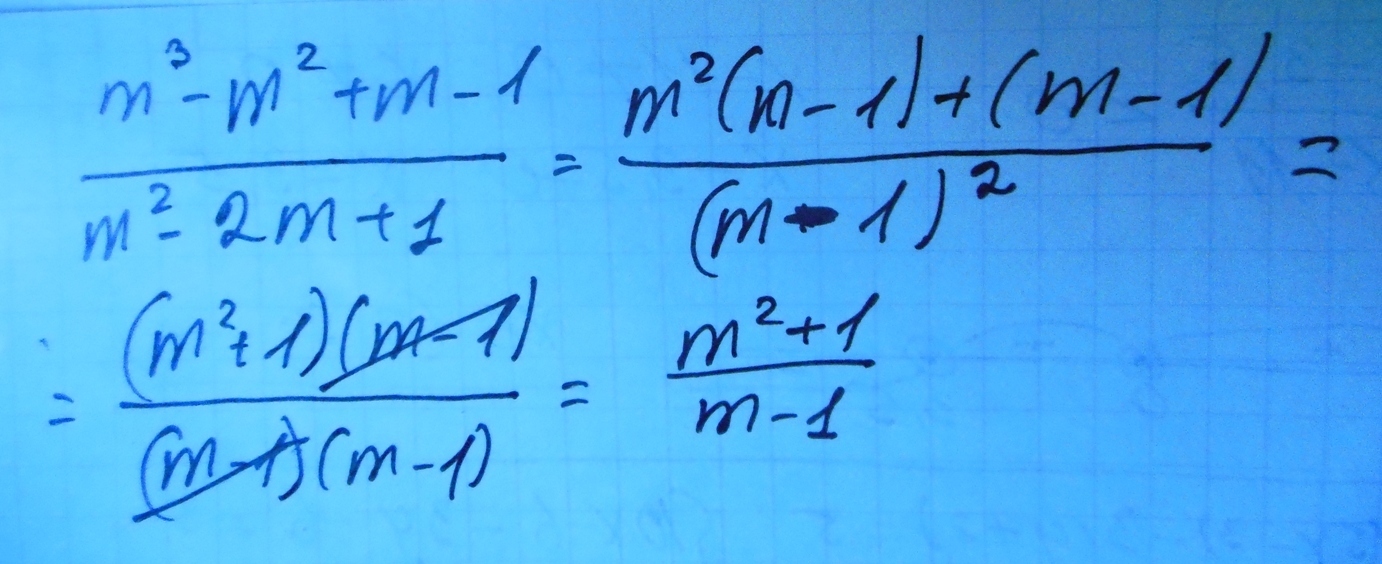 m³ - m² + m - 1 / m² - 2m + 1 = m²(m - 1) + (m - 1) / (m - 1)² =
= (m² + 1)(m - 1) / (m - 1)(m - 1) = m² + 1 / m - 1